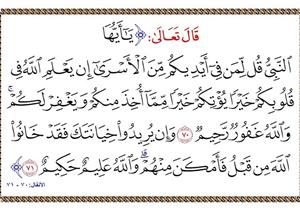 قَالَ تَعَالَىٰ: ﴿ يَٰٓأَيُّهَا
ٱلنَّبِيُّ قُل لِّمَن فِيٓ أَيۡدِيكُم مِّنَ ٱلۡأَسۡرَىٰٓ إِن يَعۡلَمِ ٱللَّهُ فِي
قُلُوبِكُمۡ خَيۡرٗا يُؤۡتِكُمۡ خَيۡرٗا مِّمَّآ أُخِذَ مِنكُمۡ وَيَغۡفِرۡ لَكُمۡۚ
وَٱللَّهُ غَفُورٞ رَّحِيمٞ ٧٠ وَإِن يُرِيدُواْ خِيَانَتَكَ فَقَدۡ خَانُواْ
ٱللَّهَ مِن قَبۡلُ فَأَمۡكَنَ مِنۡهُمۡۗ وَٱللَّهُ عَلِيمٌ حَكِيمٌ ٧١ ﴾
الأنفال: ٧٠ - ٧١